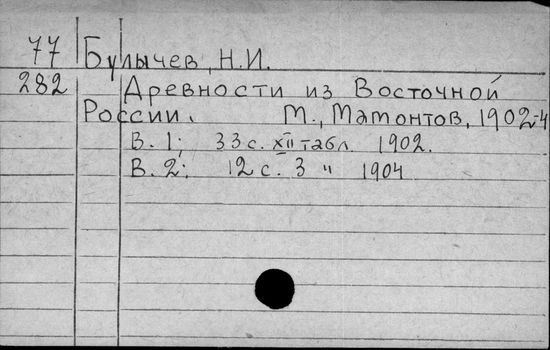 77 Булычев, Н.И.
282 Древности из Восточной
России. М., Мамонтов, 1902-4
В. 1; 33 с. XII табл. 1902.
В. 2; 12 с. 3 " 1904